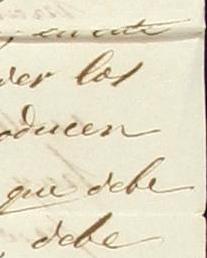 der los
oducen
que debe
debe